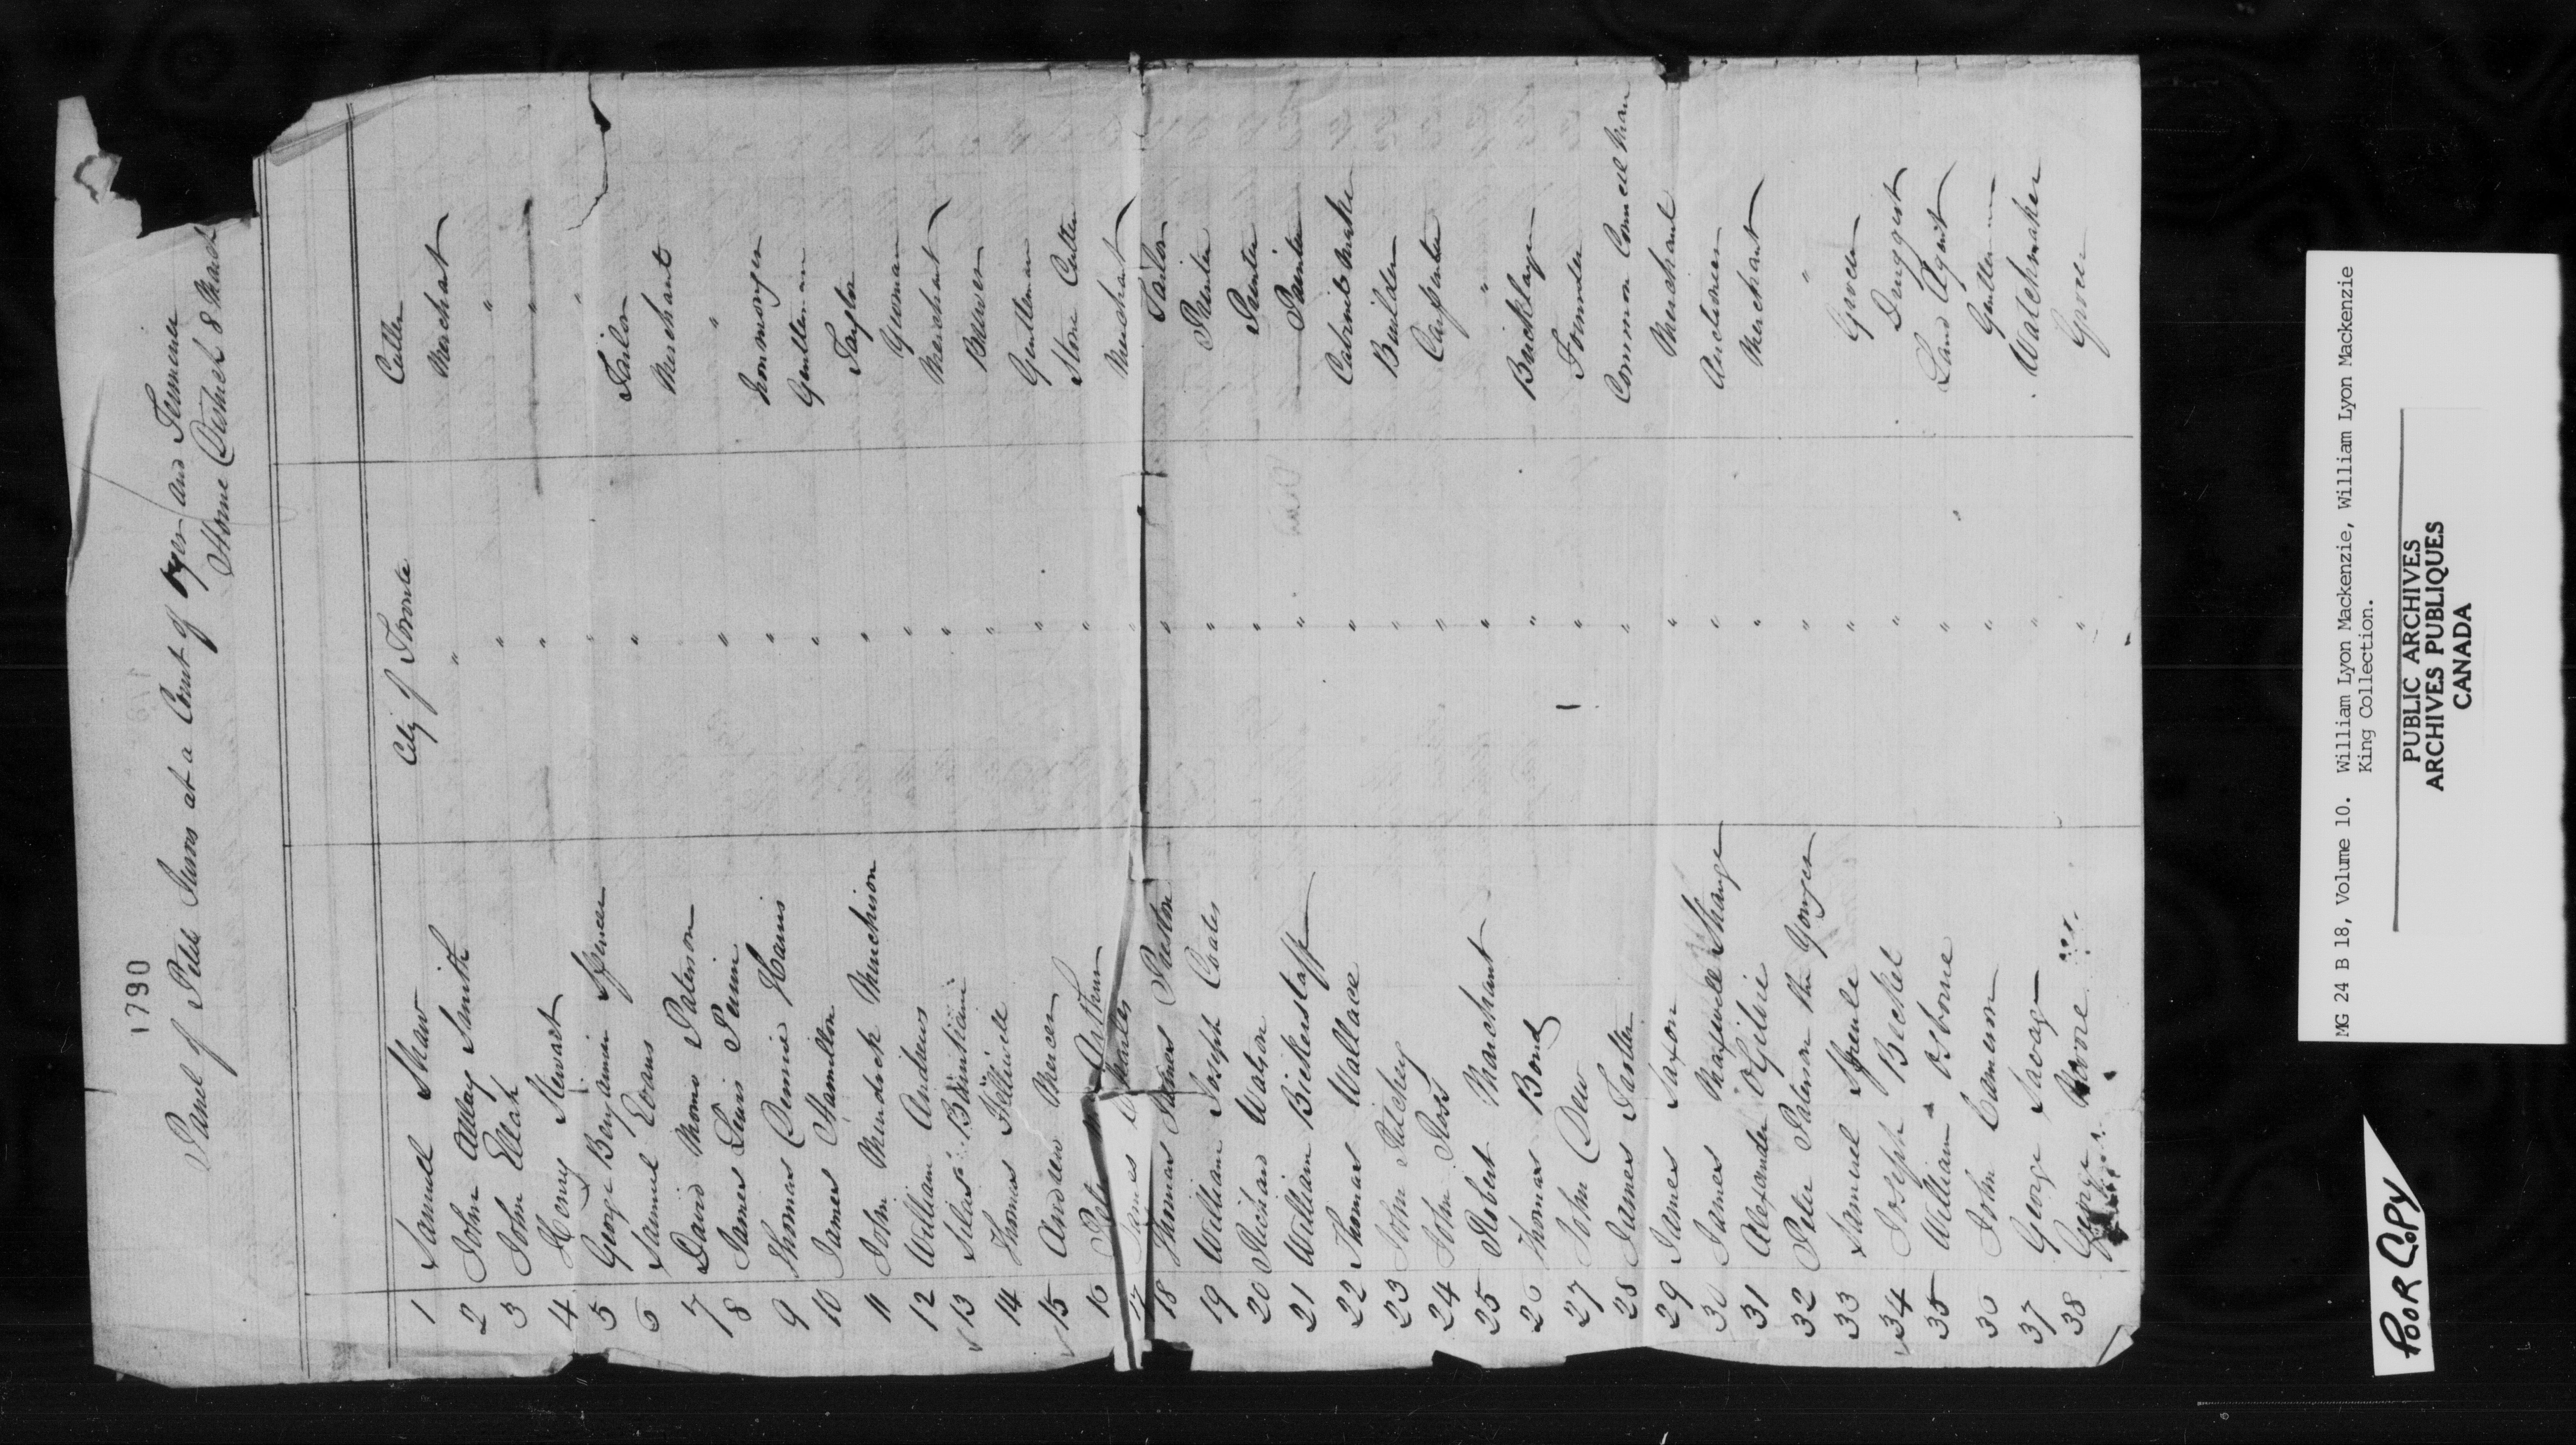 1790
Panel of Petit Jurors at a Court of Oyer and Terminer
Home District 8 March
1 Samuel Shaw City of Toronto Cutler
2 John Allday Smith " Merchant
3 John Ellah " "
4 Henry Stewart " "
5 George Benjamin Spencer " "
6 Samuel Evans " Tailor
7 David Morris Paterson Merchant
8 James Lewis Perrin " "
9 Thomas Dennie Harris " Ironmonger
10 James Hamilton " Gentleman
11 John Murdoch Murchison " Taylor
12 William Andrews " Yeoman
13 Silas Burnham " Merchant
14 Thomas Helliwell " Brewer
15 Andrew Mercer " Gentleman
16 Peter Arthur " Stone Cutter
17 James Charles " Merchant
18 Thomas James Preston " Tailor
19 William Joseph Coates " Printer
20 Richard Watson " Printer
21 William Bickerstaff " Painter
22 Thomas Wallace " Cabinet Maker
23 John Ritchey " Builder
24 John Ross " Carpenter
25 Robert Marchant " "
26 Thomas Bond " Bricklayer
27 John Dew " Founder
28 James Trotter " Common Council Man
29 James Saxon " Merchant
30 James Maxwell Strange " Auctioneer
31 Alexander Ogilvie " Merchant
32 Peter Paterson the Younger " "
33 Samuel Sproule " Grocer
34 Joseph Becket " Druggist
35 William Osborne " Land Agent
36 John Cameron " Gentleman
37 George Savage " Watchmaker
38 George Monro " Grocer
MG 24 B 18, Volume 10. William Lyon Mackenzie, William Lyon Mackenzie
King Collection.
PUBLIC ARCHIVES
ARCHIVES PUBLIQUES
CANADA
POOR COPY